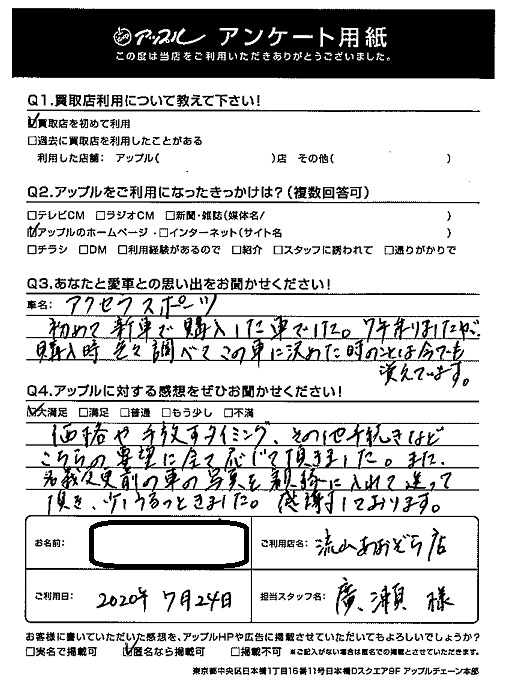 アップル アンケート用紙
この度は当店をご利用いただきありがとうございました。
Q1.買取店利用について教えて下さい!
☑買取店を初めて利用
□過去に買取店を利用したことがある
利用した店舗: アップル( )店 その他( )
Q2.アップルをご利用になったきっかけは?(複数回答可)
□テレビCM □ラジオCM □新聞・雑誌(媒体名/ )
☑アップルのホームページ・□インターネット(サイト名 )
□チラシ □DM □利用経験があるので □紹介 □スタッフに誘われて □通りがかりで
Q3.あなたと愛車との思い出をお聞かせください!
車名: アクセラスポーツ
初めて新車で購入した車でした。7年乗りましたが、
購入時色々調べてこの車に決めた時のことは今でも
覚えています。
Q4.アップルに対する感想をぜひお聞かせください!
☑大満足 □満足 □普通 □もう少し □不満
価格や手放すタイミング、その他手続きなど
こちらの要望に全て応じて頂きました。また、
名義変更前の車の写真を額縁に入れて送って
頂き、少しうるっときました。感謝しております。
お名前:
ご利用店名: 流山おおぞら店
ご利用日: 2020年 7月24日
担当スタッフ名: 廣瀬 様
お客様に書いていただいた感想を、アップルHPや広告に掲載させていただいてもよろしいでしょうか?
□実名で掲載可 ☑匿名なら掲載可 □掲載不可 ※ご記入がない場合は匿名での掲載とさせていただきます。
東京都中央区日本橋1丁目16番11号日本橋Dスクエア9F アップルチェーン本部